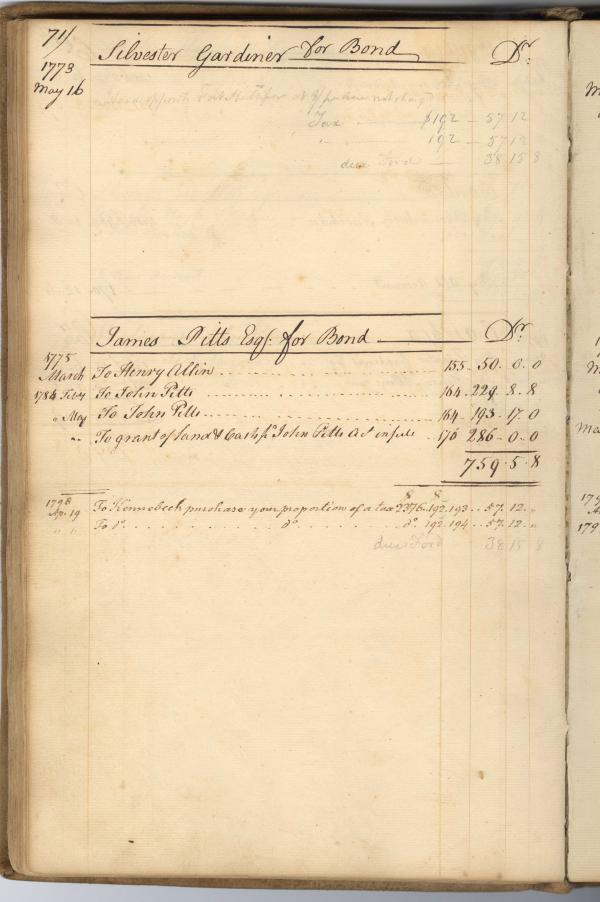 71
Silvester Gardiner for Bond Dr.
1773
May 16
Tax $192 - 57 12
" 192 - 57 12
due Ford - 38 15 8
James Pitts Esq. for Bond Dr.
1775
March To Henry Allin 155 - 50 - 0 - 0
1784 Febry To John Pitts 164 - 229 - 8 - 8
" May To John Pitts 164 - 193 - 17 - 0
" To grant of land & Cash pr John Pitts Act in full 176 286 - 0 - 0
759 - 5 - 8
1798 $ $
Ap. 19 To Kennebeck purchase your proportion of a tax 2376. 192. 193 - 57. 12. "
" " To do. do. do. 192. 194 - 57. 12. "
due Ford 38 15 8